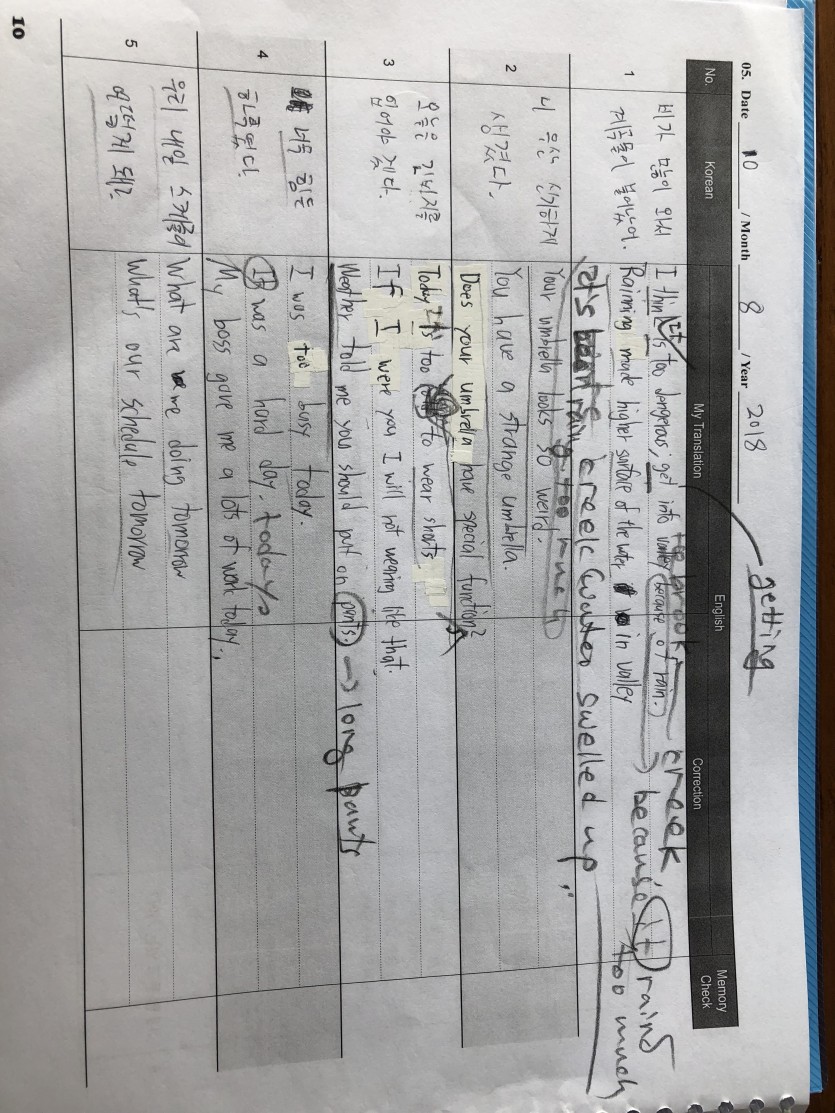 05. Date 10 / Month 8 / Year 2018
getting
No. Korean My Translation English Correction Memory Check
1
비가 많이 와서
계곡물이 불어났어.
I think it's too dangerous; get into valley because of rain.
to brook creek
Rainning made higher surface of the water in valley
because it rains too much
It's raining too much
creek water swelled up
2
니 우산 신기하게
생겼다.
Your umbrella looks so weird.
You have a strange umbrella.
Does your umbrella have special function?
3
오늘은 긴바지를
입어야 겠다.
Today is too to wear shorts
If I were you I will not wearing like that.
Weather told me you should put on pants. → long pants
4
너무 힘든
하루였다.
I was too busy today.
It was a hard day. today
My boss gave me a lots of work today.
5
우리 내일 스케줄이
어떻게 돼?
What are we doing tomorrow
What's our schedule tomorrow
10